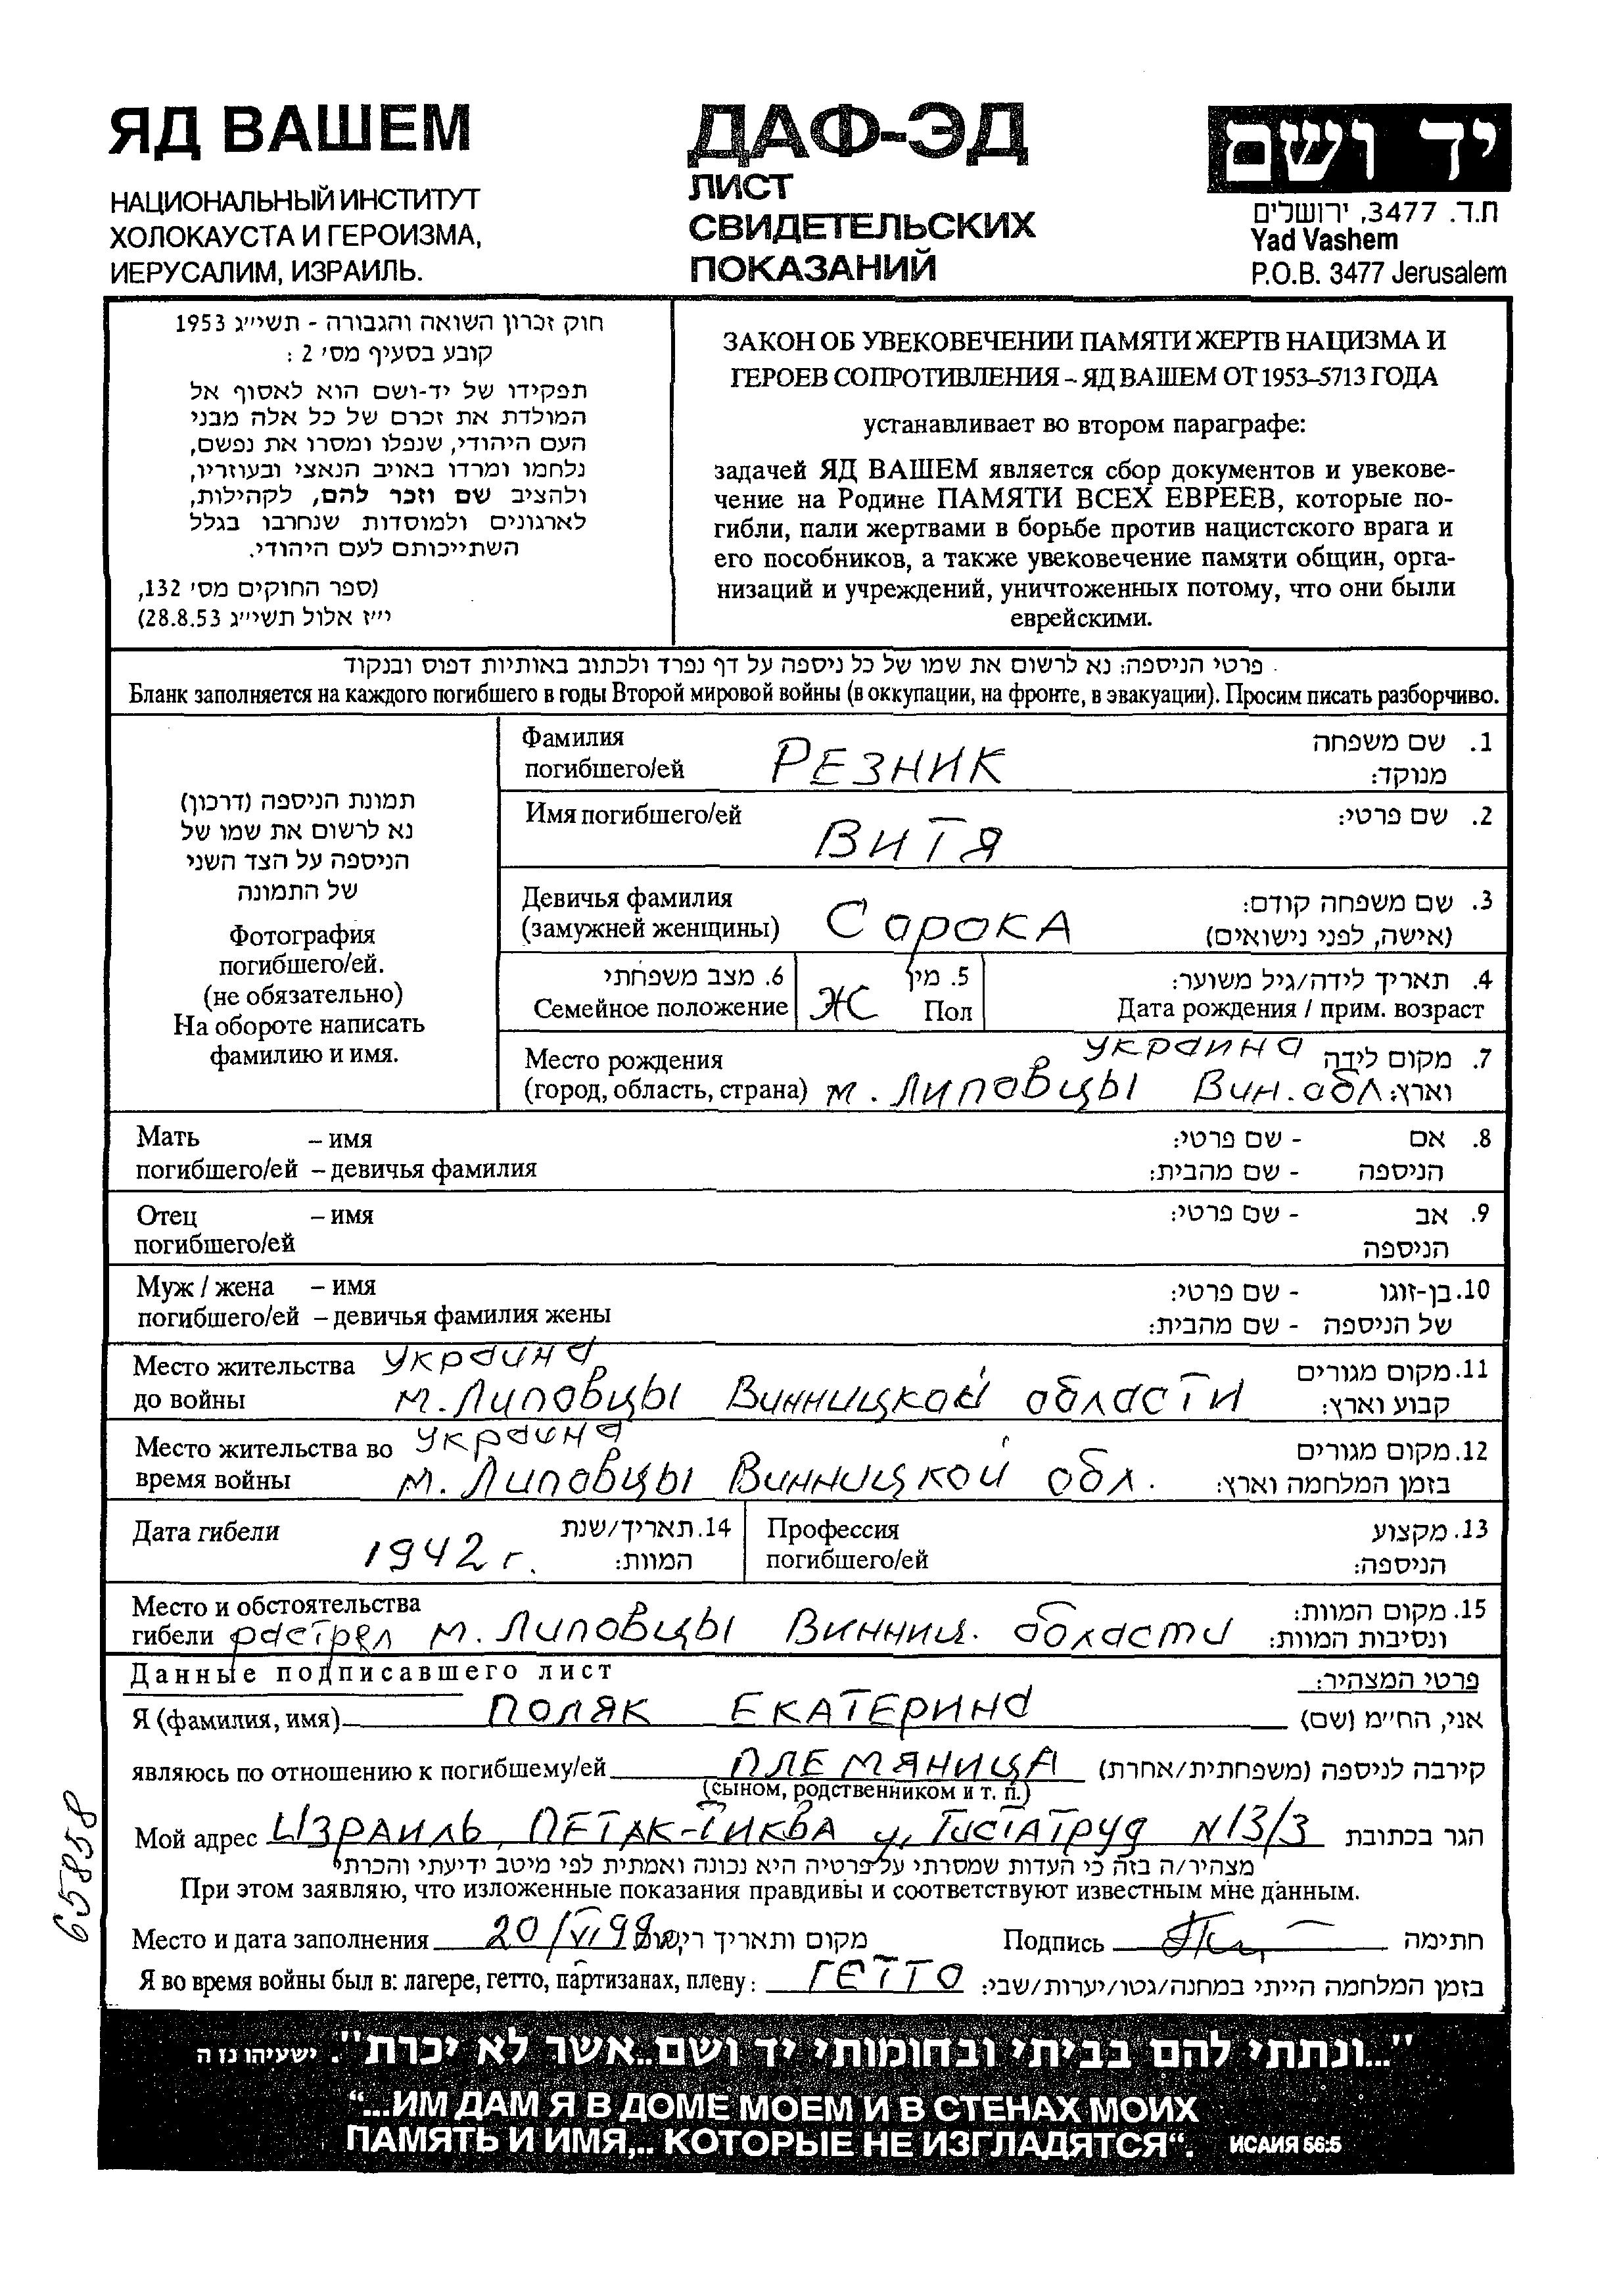 ЯД ВАШЕМ
НАЦИОНАЛЬНЫЙ ИНСТИТУТ
ХОЛОКАУСТА И ГЕРОИЗМА,
ИЕРУСАЛИМ, ИЗРАИЛЬ.
ДАФ-ЭД
ЛИСТ
СВИДЕТЕЛЬСКИХ
ПОКАЗАНИЙ
יד ושם
ת.ד. 3477, ירושלים
Yad Vashem
P.O.B. 3477 Jerusalem
חוק זכרון השואה והגבורה - תשי״ג 1953
קובע בסעיף מס׳ 2 :
תפקידו של יד-ושם הוא לאסוף אל
המולדת את זכרם של כל אלה מבני
העם היהודי, שנפלו ומסרו את נפשם,
נלחמו ומרדו באויב הנאצי ובעוזריו,
ולהציב שם וזכר להם, לקהילות,
לארגונים ולמוסדות שנחרבו בגלל
השתייכותם לעם היהודי.
(ספר החוקים מס׳ 132,
י״ז אלול תשי״ג 28.8.53)
ЗАКОН ОБ УВЕКОВЕЧЕНИИ ПАМЯТИ ЖЕРТВ НАЦИЗМА И
ГЕРОЕВ СОПРОТИВЛЕНИЯ – ЯД ВАШЕМ ОТ 1953–5713 ГОДА
устанавливает во втором параграфе:
задачей ЯД ВАШЕМ является сбор документов и увекове-
чение на Родине ПАМЯТИ ВСЕХ ЕВРЕЕВ, которые по-
гибли, пали жертвами в борьбе против нацистского врага и
его пособников, а также увековечение памяти общин, орга-
низаций и учреждений, уничтоженных потому, что они были
еврейскими.
פרטי הניספה: נא לרשום את שמו של כל ניספה על דף נפרד ולכתוב באותיות דפוס ובנקוד
Бланк заполняется на каждого погибшего в годы Второй мировой войны (в оккупации, на фронте, в эвакуации). Просим писать разборчиво.
תמונת הניספה (דרכון)
נא לרשום את שמו של
הניספה על הצד השני
של התמונה
Фотография
погибшего/ей.
(не обязательно)
На обороте написать
фамилию и имя.
Фамилия 1. שם משפחה
погибшего/ей РЕЗНИК מנוקד:
Имя погибшего/ей 2. שם פרטי:
ВИТЯ
Девичья фамилия 3. שם משפחה קודם:
(замужней женщины) Сорока (אישה, לפני נישואים)
6. מצב משפחתי 5. מין 4. תאריך לידה/גיל משוער:
Семейное положение Ж Пол Дата рождения / прим. возраст
Место рождения Украина 7. מקום לידה
(город, область, страна) м. Липовцы Вин. обл וארץ:
Мать – имя 8. אם - שם פרטי:
погибшего/ей – девичья фамилия הניספה - שם מהבית:
Отец – имя 9. אב - שם פרטי:
погибшего/ей הניספה
Муж / жена – имя 10. בן-זוגו - שם פרטי:
погибшего/ей – девичья фамилия жены של הניספה - שם מהבית:
Место жительства Украина 11. מקום מגורים
до войны м. Липовцы Винницкой области קבוע וארץ:
Место жительства во Украина 12. מקום מגורים
время войны м. Липовцы Винницкой обл. בזמן המלחמה וארץ:
Дата гибели 14. תאריך/שנת Профессия 13. מקצוע
1942 г. המוות: погибшего/ей הניספה:
Место и обстоятельства 15. מקום המוות:
гибели растрел м. Липовцы Винниц. области ונסיבות המוות:
Данные подписавшего лист פרטי המצהיר:
Я (фамилия, имя) ПОЛЯК ЕКАТЕРИНА אני, הח״מ (שם)
являюсь по отношению к погибшему/ей ПЛЕМЯНИЦА קירבה לניספה (משפחתית/אחרת)
(сыном, родственником и т. п.)
Мой адрес ИЗРАИЛЬ, ПЕТАК-ТИКВА ул, Гистатруд N 13/3 הגר בכתובת
מצהיר/ה בזה כי העדות שמסרתי על פרטיה היא נכונה ואמתית לפי מיטב ידיעתי והכרתי
При этом заявляю, что изложенные показания правдивы и соответствуют известным мне данным.
Место и дата заполнения 20/VI 99г. מקום ותאריך רישום Подпись חתימה
Я во время войны был в: лагере, гетто, партизанах, плену: ГЕТТО בזמן המלחמה הייתי במחנה/גטו/יערות/שבי:
65858
"...ונתתי להם בביתי ובחומותי יד ושם..אשר לא יכרת". ישעיהו נז ה
“...ИМ ДАМ Я В ДОМЕ МОЕМ И В СТЕНАХ МОИХ
ПАМЯТЬ И ИМЯ,.. КОТОРЫЕ НЕ ИЗГЛАДЯТСЯ“. ИСАИЯ 56:5